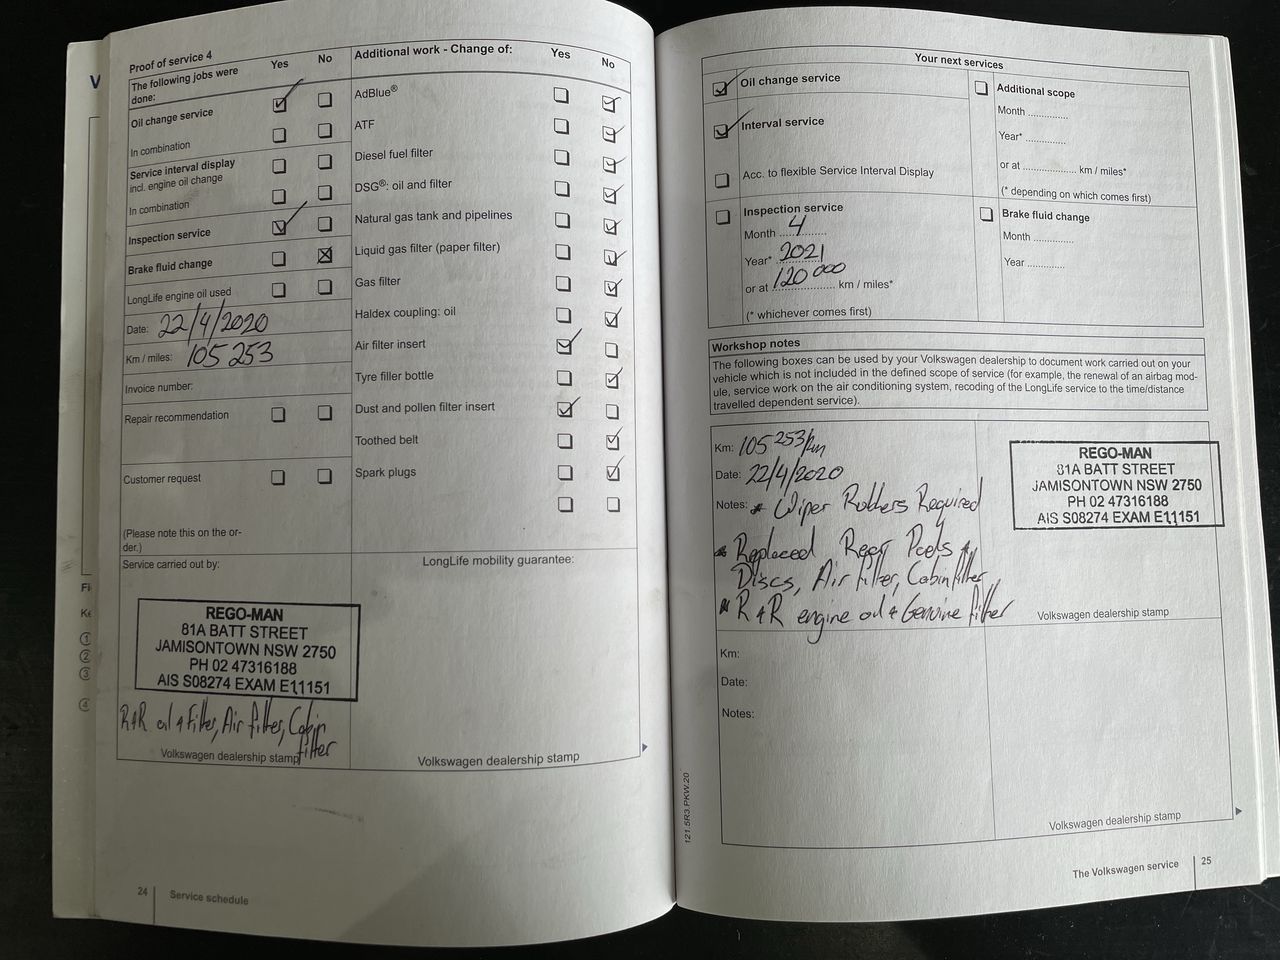 Proof of service 4
The following jobs were done:
Yes No
Oil change service
In combination
Service interval display
incl. engine oil change
In combination
Inspection service
Brake fluid change
LongLife engine oil used
Date: 22/4/2020
Km / miles: 105 253
Invoice number:
Repair recommendation
Customer request
(Please note this on the or-
der.)
Additional work - Change of:
Yes No
AdBlue®
ATF
Diesel fuel filter
DSG®: oil and filter
Natural gas tank and pipelines
Liquid gas filter (paper filter)
Gas filter
Haldex coupling: oil
Air filter insert
Tyre filler bottle
Dust and pollen filter insert
Toothed belt
Spark plugs
Service carried out by:
REGO-MAN
81A BATT STREET
JAMISONTOWN NSW 2750
PH 02 47316188
AIS S08274 EXAM E11151
R&R oil & Filter, Air filter, Cabin
filter
Volkswagen dealership stamp
LongLife mobility guarantee:
Volkswagen dealership stamp
24
Service schedule
V
Fi
Ke
1
2
3
4
Your next services
Oil change service
Interval service
Acc. to flexible Service Interval Display
Inspection service
Month ....4........
Year* 2021
or at 120 000 km / miles*
(* whichever comes first)
Additional scope
Month ..............
Year* ..............
or at .................... km / miles*
(* depending on which comes first)
Brake fluid change
Month ..............
Year ..............
Workshop notes
The following boxes can be used by your Volkswagen dealership to document work carried out on your
vehicle which is not included in the defined scope of service (for example, the renewal of an airbag mod-
ule, service work on the air conditioning system, recoding of the LongLife service to the time/distance
travelled dependent service).
Km: 105 253/km
Date: 22/4/2020
Notes: * Wiper Rubbers Required
* Replaced Rear Pads &
Discs, Air filter, Cabin filter
* R&R engine oil & Genuine filter
REGO-MAN
81A BATT STREET
JAMISONTOWN NSW 2750
PH 02 47316188
AIS S08274 EXAM E11151
Volkswagen dealership stamp
Km:
Date:
Notes:
Volkswagen dealership stamp
121.5R3.PKW.20
The Volkswagen service
25